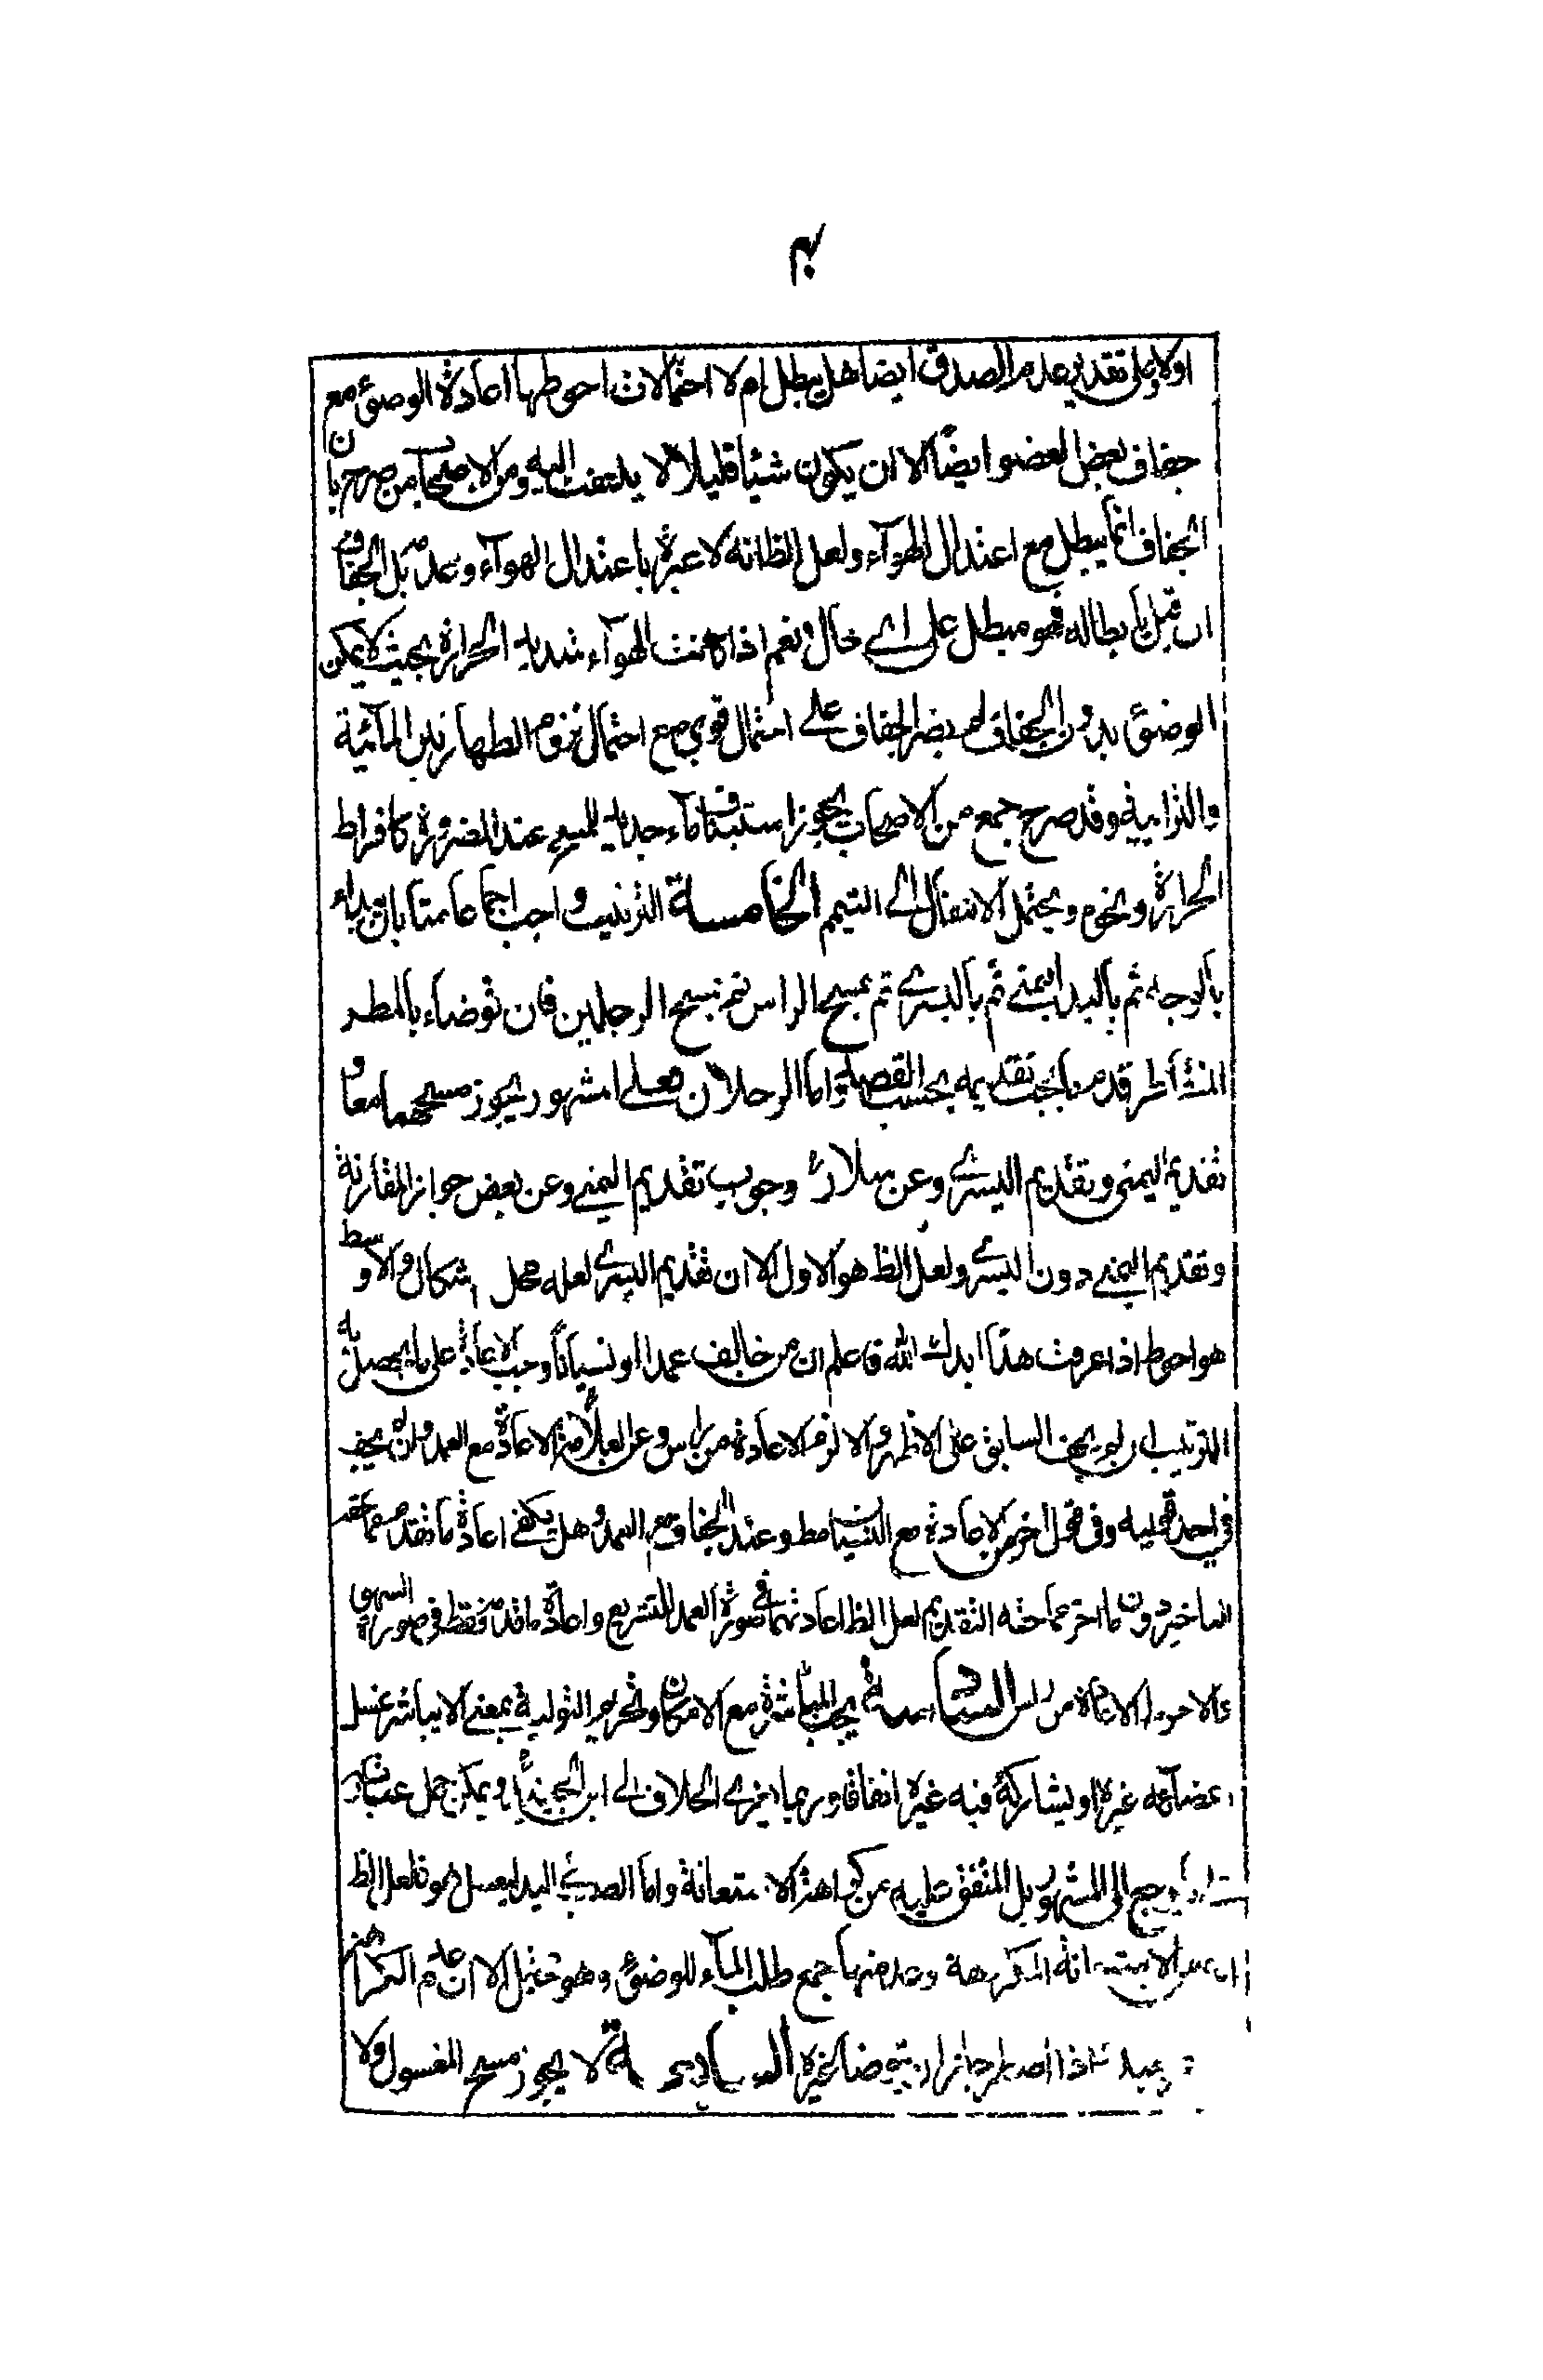 اولا وعلى تقدير عدم الصدق ايضا هل يبطل ام لا احتمالات احوطها اعادة الوضوء مع
جفاف بعض العضو ايضا الا ان يكون شيئا قليلا لا يلتفت اليه ومن الاصحاب من صرح بان
الجفاف انما يبطل مع اعتدال الهوآء ولعل الظ انه لا عبرة باعتدال الهوآء وعدمه بل الجفاف
ان قيل بابطاله فهو مبطل على اي حال ونعم اذا كانت الهوآء شديد الحرارة بحيث لا يمكن
الوضوء بدون الجفاف لم يضر الجفاف على احتمال قوي مع احتمال لزوم الطهارتين المآئية
والترابية وقد صرح جمع من الاصحاب بجواز استيناف مآء جديد للمسح عند الضرورة كافراط
الحرارة ونحوه ويحتمل الانتقال الى التيمم الخامسة الترتيب واجب اجماعا منا بان يبداء
بالوجه ثم باليد اليمنى ثم باليسرى ثم يمسح الراس ثم يمسح الرجلين فان توضاء بالمطر
المتقاطر قدم ما يجب تقديمه بحسب القصد واما الرجلان فعلى المشهور يجوز مسحهما معا و
تقديم اليمنى وتقديم اليسرى وعن سلار وجوب تقديم اليمنى وعن بعض جواز المقارنة
وتقديم اليمنى دون اليسرى ولعل الظ هو الاول الا ان تقديم اليسرى لعله محل اشكال والاوسط
هو احوط اذا عرفت هذا ايدك الله فاعلم ان من خالف عمدا او نسيانا وجب الاعادة على ما يحصل به
الترتيب ان لم يجف السابق على الاظهر والا لزم الاعادة من راس وعن العلامة الاعادة مع العمد وان لم يجف
في احد قوليه وفي قول اخر الاعادة مع النسيان مط وعند الجفاف مع العمد وهل يكفي اعادة ما تقدم مما حقه
التاخير دون ما اخر مما حقه التقديم لعل الظ اعادتهما في صورة العمد للتشريع واعادة ما قدم فقط في صورة السهو
والاحوط الاعادة من راس السادسة يجب المباشرة مع الامكان وتحريم التولية بمعنى ان لا يباشر غسل
اعضائه غيره او يشاركه فيه غيره اتفاقا وربما يعزى الخلاف الى ابن الجنيد ويمكن حمل عبارته
يرجع الى المشهور بل المتفق عليه من كراهة الاستعانة واما الصب في اليد ليغسل هو فلعل الظ
الاستعانة المكروهة وعد منها جمع طلب المآء للوضوء وهو محتمل الا ان عدم الكراهة
بعيد اذا اضطر جاز ان يتوضا لغيره السابعة لا يجوز مسح المغسول ولا